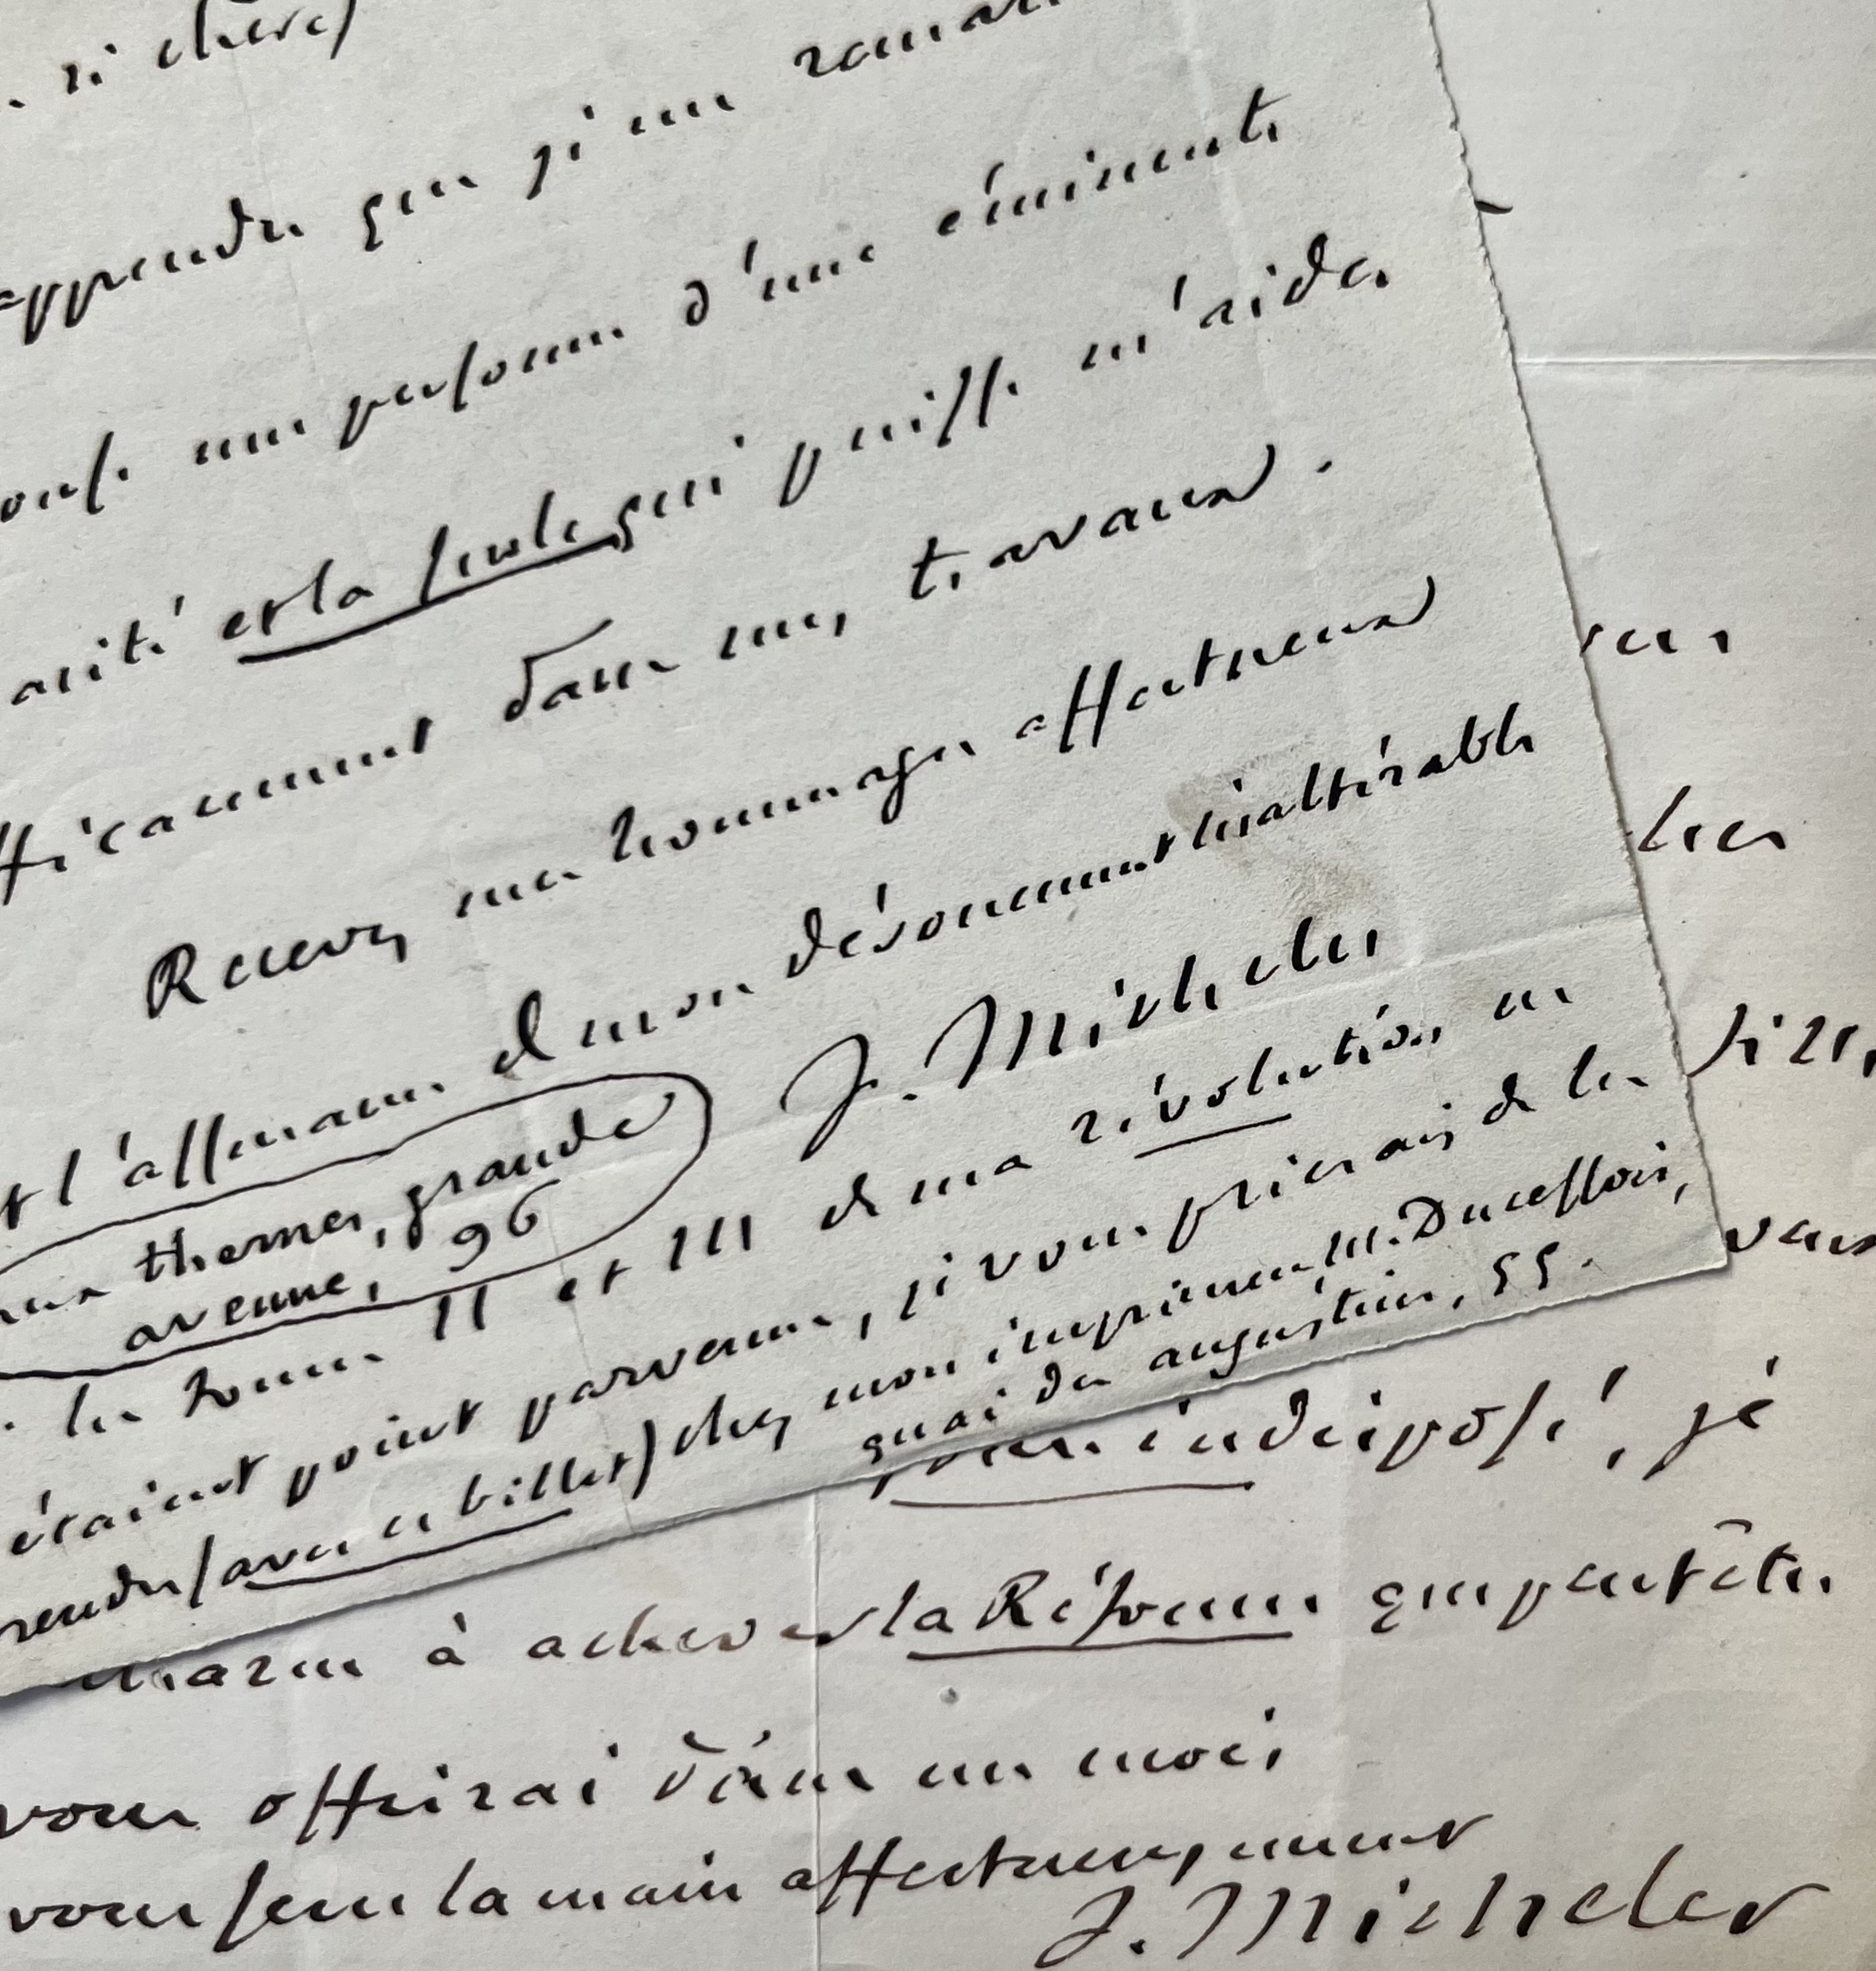 si chère)
apprendre que j'ai un
une personne d'une éminente
est la seule qui puisse m'aider
efficacement dans mes travaux.
Recevez mes hommages affectueux
et l'assurance de mon dévouement inaltérable
J. Michelet
aux thernes, grande
avenue, 96
les tomes II et III de ma révolution ne
étaient point parvenus, je vous prierais de les
prendre (avec ce billet) chez mon imprimeur, M. Ducessois,
quai des augustins, 55.
indisposé, je
à achever la Réforme que peut être
vous offrirai dans un mois
vous serre la main affectueusement
J. Michelet